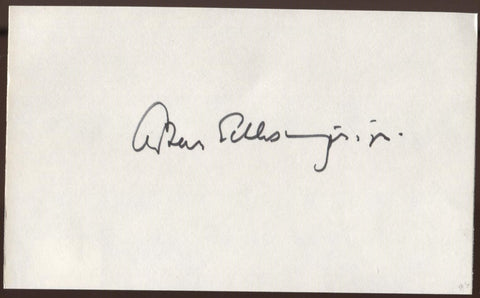 Arthur Schlesinger, jr.